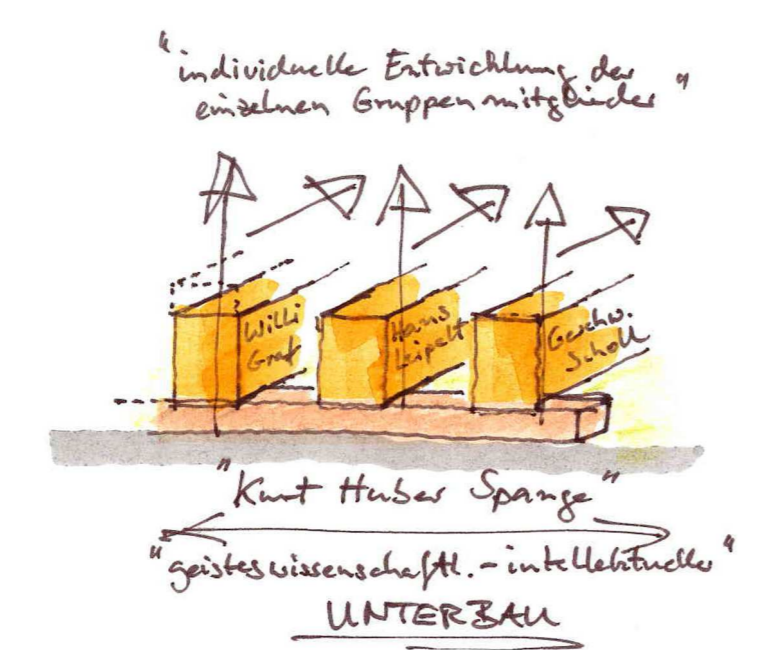 "individuelle Entwicklung der
einzelnen Gruppenmitglieder"
Willi
Graf
Hans
Leipelt
Geschw.
Scholl
"Kurt Huber Spange"
"geisteswissenschaftl.-intellektueller"
UNTERBAU